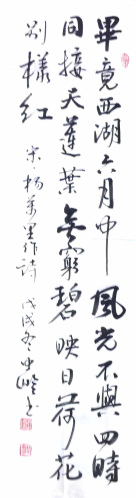 畢竟西湖六月中風光不與四時
同接天蓮葉無窮碧映日荷花
別樣紅 宋楊萬里作詩 戊戌冬